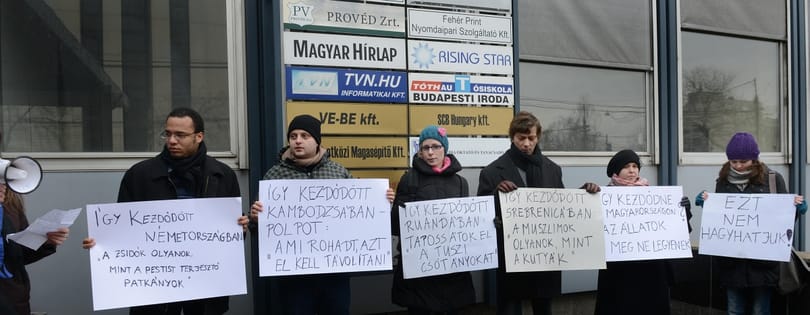 PV
PROVÉD Zrt.
Fehér Print
Nyomdaipari Szolgáltató Kft.
MAGYAR HÍRLAP
RISING STAR
TVN TVN.HU
INFORMATIKAI KFT.
TÓTH AUTÓSISKOLA
BUDAPESTI IRODA
VE-BE kft.
SCB Hungary kft.
Magasépítő Kft.
ÍGY KEZDŐDÖTT
NÉMETORSZÁGBAN
"A ZSIDÓK OLYANOK,
MINT A PESTIST TERJESZTŐ
PATKÁNYOK"
ÍGY KEZDŐDÖTT
KAMBODZSÁBAN -
POLPOT:
AMI ROHADT, AZT
EL KELL TÁVOLÍTANI
ÍGY KEZDŐDÖTT
RUANDÁBAN:
"TAPOSSÁTOK EL
A TUSZI
CSÓTÁNYOKAT"
ÍGY KEZDŐDÖTT
SREBRENICÁBAN
"A MUSZLIMOK
OLYANOK, MINT
A KUTYÁK"
ÍGY KEZDŐDNE
MAGYARORSZÁGON
"AZ ÁLLATOK
NE LEGYENEK"
EZT
NEM
HAGYHATJUK!